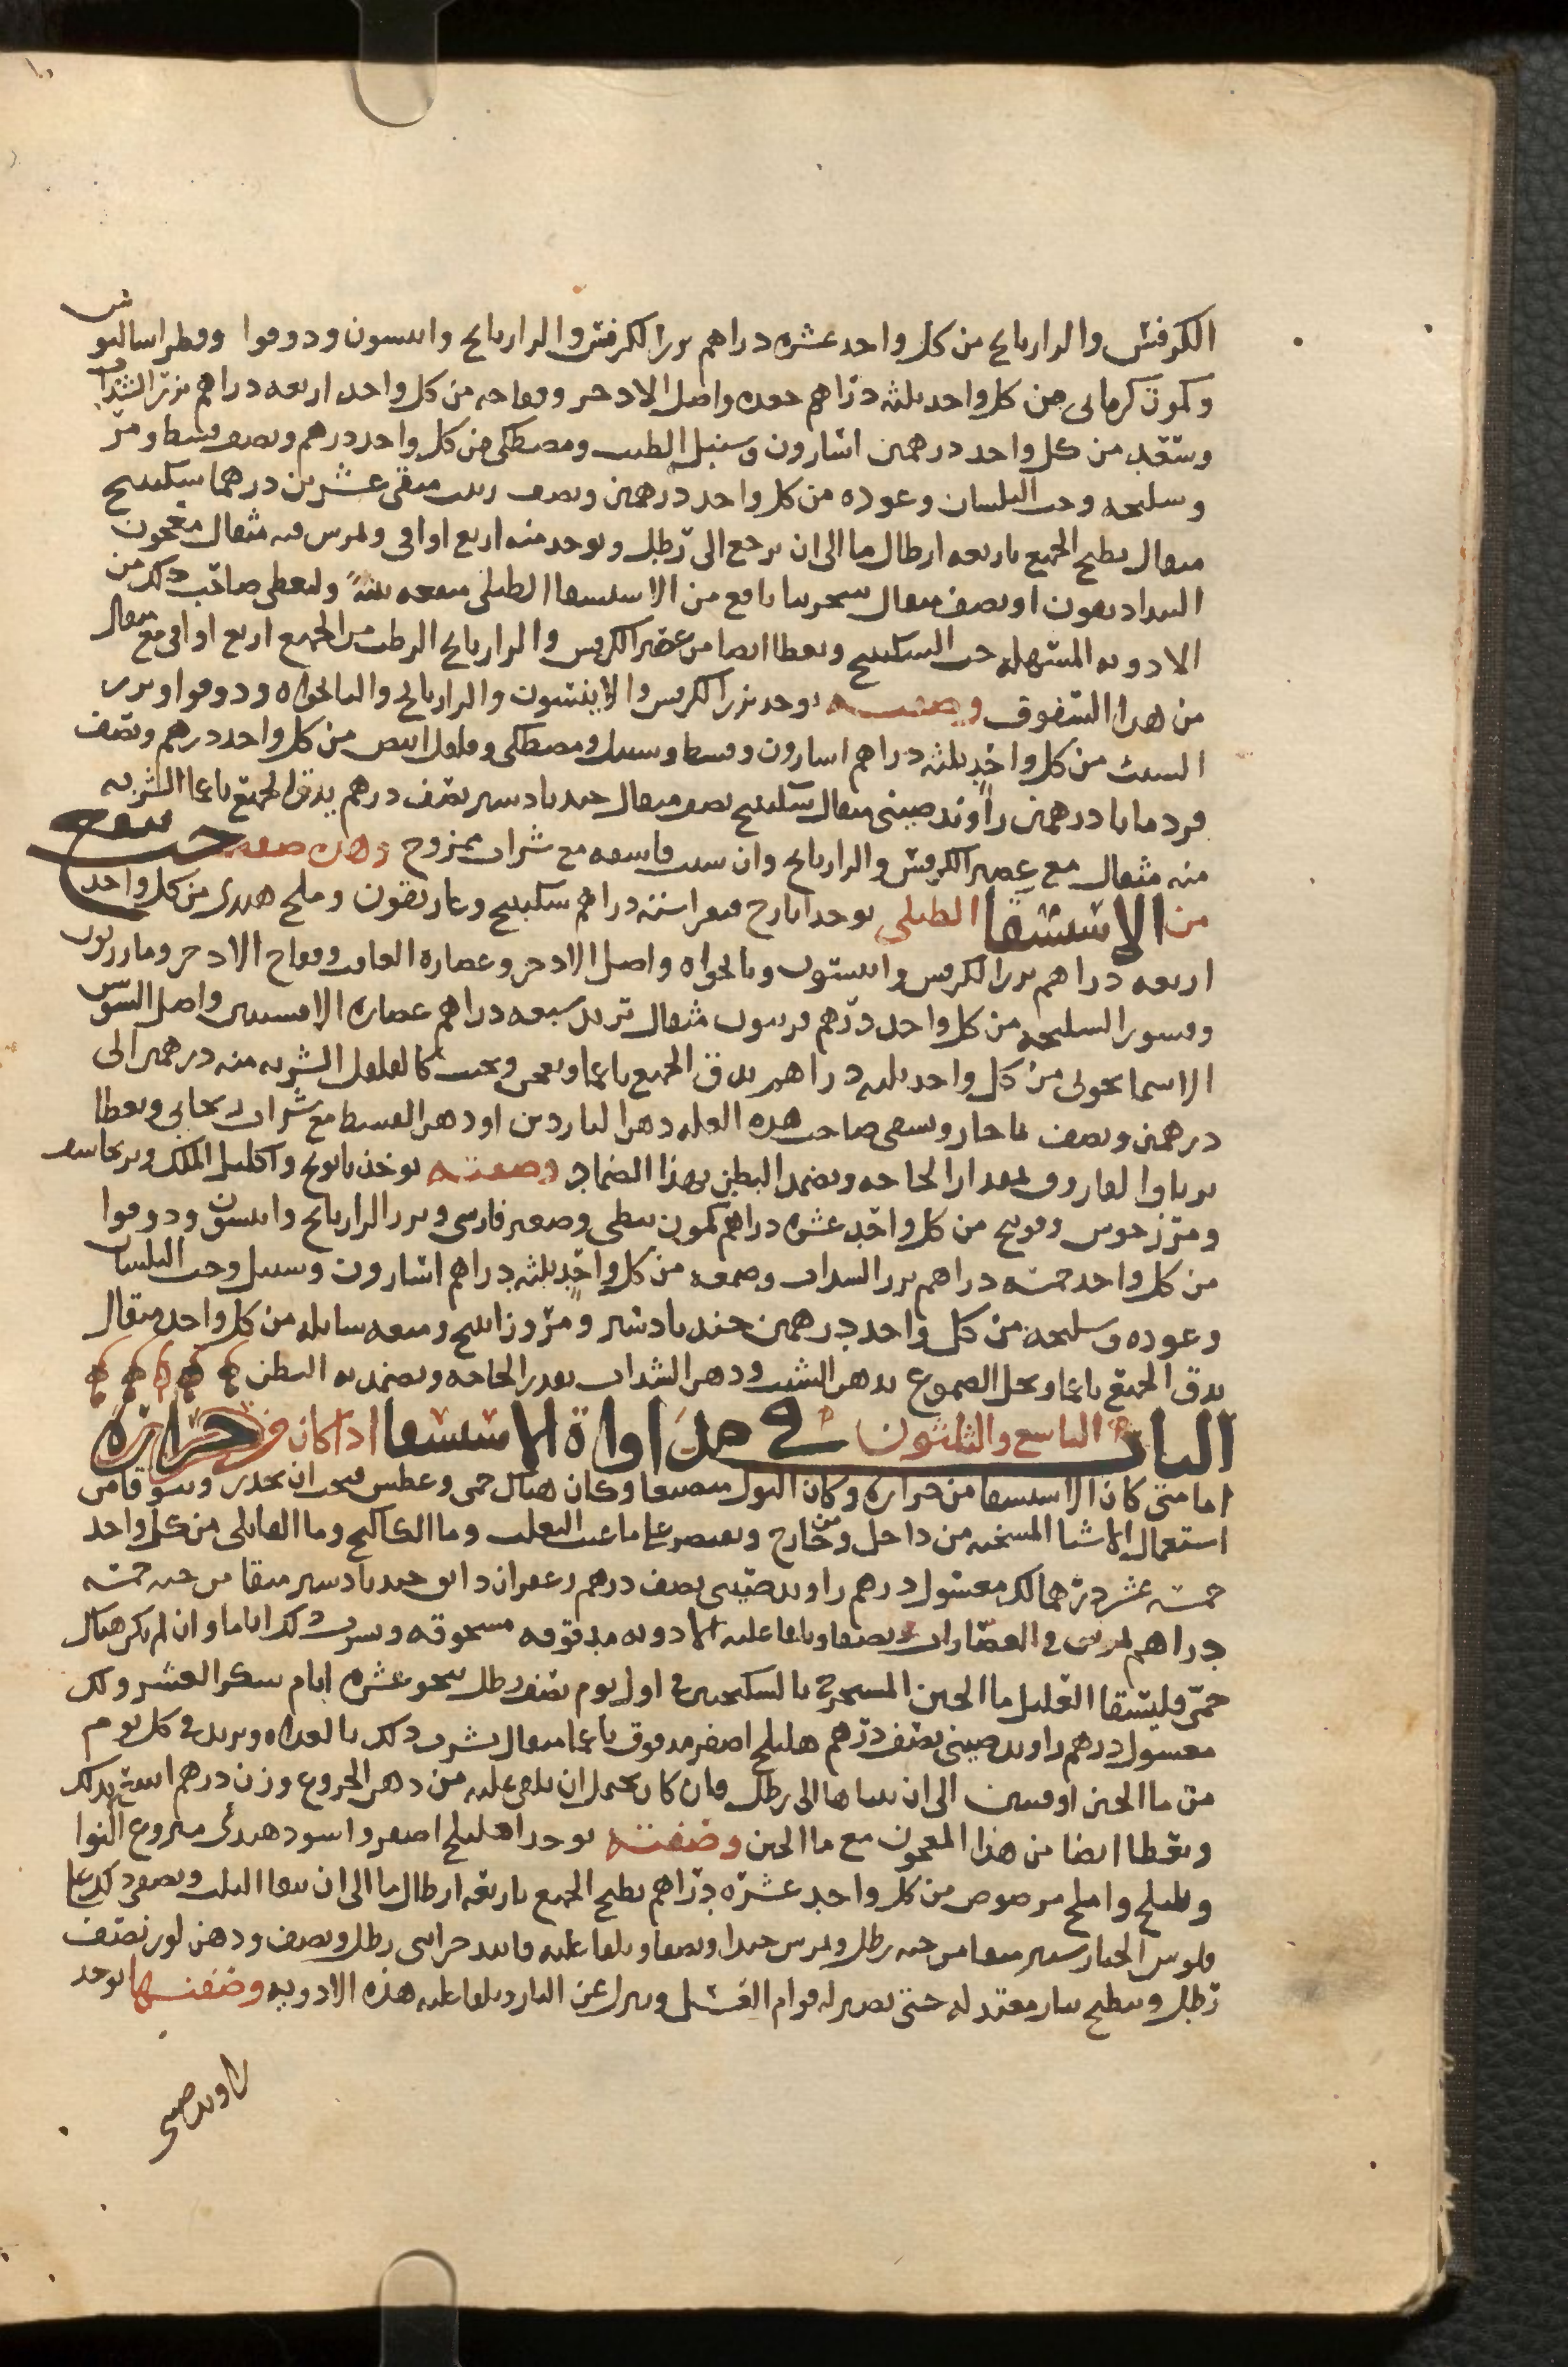 الكرفس والرازيانج من كل واحد عشره دراهم بزر الكرفس والرازيانج وانيسون ودوقوا وفطراساليون
وكمون كرمانى من كل واحد ثلثه دراهم جعده واصل الادخر وفقاحه من كل واحد اربعه دراهم بزر السداب
وسعد من كل واحد درهمين اسارون وسنبل الطيب ومصطكى من كل واحد درهم ونصف قسط ومر
وسليخه وحب البلسان وعوده من كل واحد درهمين ونصف زبيب منقى عشرين درهما سكبينج
مثقال يطبخ الجميع باربعه ارطال ما الى ان يرجع الى رطل ويوخد منه اربع اواقى ويمرس فيه مثقال معجون
او نصف مثقال سجرينا نافع من الاستسقا الطبلى منفعه بينه وليعطى صاحب ذلك من
الادويه المسهله حب السكبينج ويعطا ايضا من عصير الكرفس والرازيانج الرطب من الجميع اربع اواقى مع مثقال
من هدا السفوف وصفته يوخد بزر الكرفس والانيسون والرازيانج والنانخواه ودوقوا وبزر
الشبث من كل واحد ثلثه دراهم اسارون وقسط وسنبل ومصطكى وفلفل ابيض من كل واحد درهم ونصف
قردمانا درهمين راوند صينى مثقال سكبينج نصف مثقال جندبادستر نصف درهم يدق الجميع ناعما الشربه
منه مثقال مع عصير الكرفس والرازيانج وان شيت فاسقه مع شراب ممزوج وهذه صفه حب ينفع
من الاستسقا الطبلى يوخد ايارج فيقرا سته دراهم سكبينج وغاريقون وملح هندى من كل واحد
اربعه دراهم بزر الكرفس وانيسون ونانخواه واصل الادخر وعصاره الغافت وفقاح الادخر ومازريون
وقشور السليخه من كل واحد درهم فربيون مثقال تربد سبعه دراهم عصاره الافسنتين واصل السوس
الاسمانجونى من كل واحد ثلثه دراهم يدق الجميع ناعما ويعجن ويحبب كالفلفل الشربه منه درهمين الى
درهمين ونصف بما حار ويسقى صاحب هده العله دهن الناردين او دهن القسط مع شراب ريحانى ويعطا
ترياق الفاروق بمقدار الحاجه ويضمد البطن بهذا الضماد وصفته يوخذ بابونج واكليل الملك وبرنجاسف
ومرزنجوش وفودنج من كل واحد عشره دراهم كمون نبطى وصعتر فارسى وبزر الرازيانج وانيسون ودوقوا
من كل واحد خمسه دراهم بزر السداب وصمغه من كل واحد ثلثه دراهم اسارون وسنبل وحب البلسان
وعوده وسليخه من كل واحد درهمين جندبادستر ومر وزانيج وميعه سايله من كل واحد مثقال
يدق الجميع ناعما ويحل الصموغ بدهن الشبث ودهن السداب بقدر الحاجه ويضمد به البطن
الباب التاسع والثلثون في مداواة الاستسقا اذا كان من حراره
اما متى كان الاستسقا من حراره وكان البول منصبغا وكان هناك حمى وعطش فيجب ان يحذر ويتوقا من
استعمال الاشيا المسخنه من داخل ومن خارج ويقتصر على ما عنب الثعلب وما الكاكنج وما القاقلى من كل واحد
خمسه عشر درهما لك مغسول درهم راوند صينى نصف درهم زعفران دانق جندبادستر منقا من حبه خمسه
دراهم يمرس في العصارات ويصفا ويلقا عليه الادويه مدقوقه مسحوقه ويشرب ذلك اياما وان لم يكن هناك
حمى فليسقا العليل ما الجبن المستخرج بالسكنجبين في اول يوم نصف رطل نحو عشره ايام بسكر العشر ولك
مغسول درهم راوند صينى نصف درهم هليلج اصفر مدقوق ناعما مثقال يشرب ذلك بالغداه ويزيد في كل يوم
من ما الجبن اوقيتين الى ان يتناها الى رطل فان كان يحتمل ان يلقى عليه من دهن الخروع وزن درهم انتفع بذلك
ويعطا ايضا من هذا المعجون مع ما الجبن وصفته يوخد اهليلج اصفر واسود هندى منزوع النوا
وبليلج واملج مرضوض من كل واحد عشره دراهم يطبخ الجميع باربعه ارطال ما الى ان يبقا الثلث ويصفى ذلك على
فلوس الخيار شنبر منقا من حبه رطل ويمرس جيدا ويصفا ويلقا عليه فانيد خزاينى رطل ونصف ودهن لوز نصف
رطل ويطبخ بنار معتدله حتى يصير له قوام العسل وينزل عن النار ويلقا عليه هذه الادويه وصفتها يوخد
راوند صينى